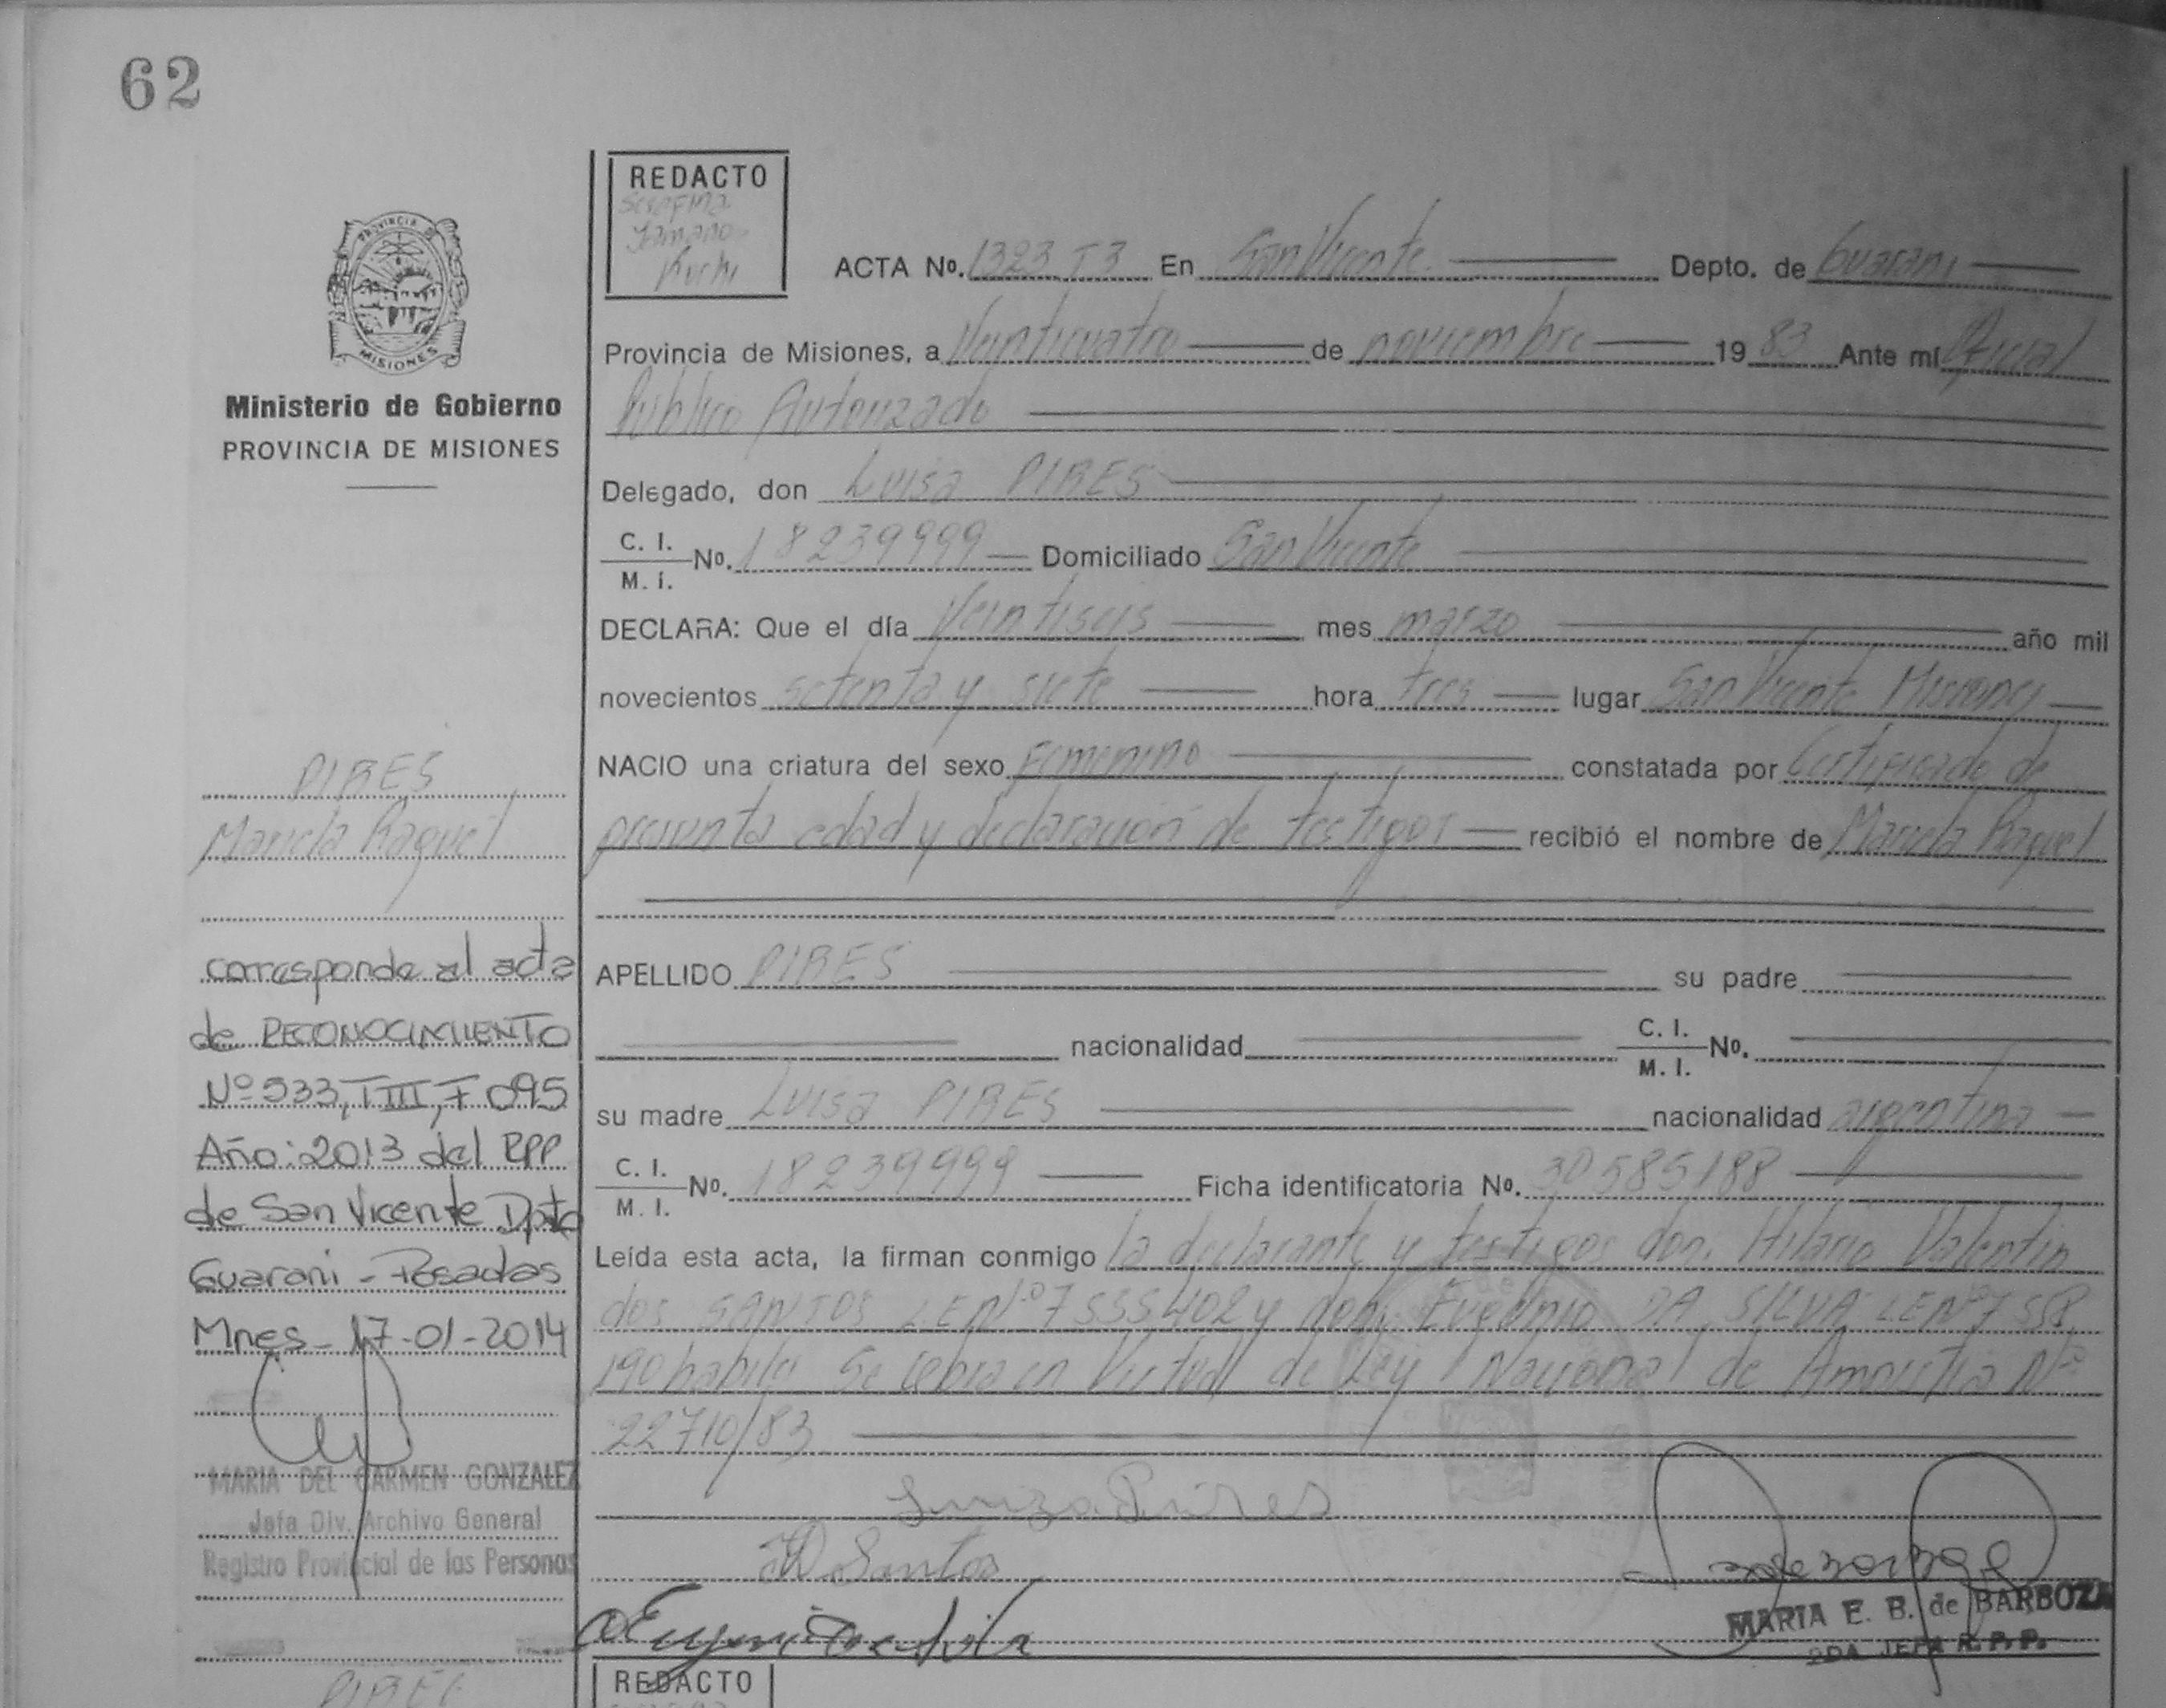 62
REDACTO
ACTA No. 1323 T3 En San Vicente Depto. de Guarani
Provincia de Misiones, a Veinticuatro de noviembre 19 83 Ante mí Oficial
Público Autorizado
Delegado, don Luisa PIRES
C. I.
M. I. No. 18239999 Domiciliado San Vicente
DECLARA: Que el día Veintiseis mes marzo año mil
novecientos setenta y siete hora tres lugar San Vicente Misiones
NACIO una criatura del sexo Femenino constatada por Certificado de
presunta edad y declaración de testigos recibió el nombre de Mariela Raquel
APELLIDO PIRES su padre
nacionalidad C. I.
M. I. No.
su madre Luisa PIRES nacionalidad argentina
C. I.
M. I. No. 18239999 Ficha identificatoria No. 30585188
Leída esta acta, la firman conmigo la declarante y testigos don. Hilario Valentin
dos SANTOS L.E.Nº 7555402 y don. Eugenio DA SILVA L.E.Nº 7558
190 habiles Se labra en Virtud de Ley Nacional de Amnistia Nº
22710/83
Luiza Pires
Santos
MARIA E. B. de BARBOZA
2DA JEFA R. P. P.
PROVINCIA DE
MISIONES
Ministerio de Gobierno
PROVINCIA DE MISIONES
PIRES
Mariela Raquel
corresponde al acta
de RECONOCIMIENTO
Nº 933, T III, F 095
Año: 2013 del RPP
de San Vicente Dpto
Guarani - Posadas
Mnes - 17-01-2014
MARIA DEL CARMEN GONZALEZ
Jefa Div. Archivo General
Registro Provincial de las Personas
PIRES
REDACTO